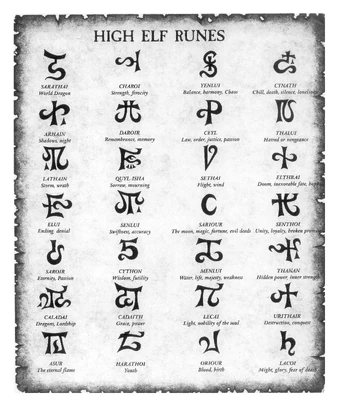 HIGH ELF RUNES
SARATHAI CHAROI YENLUI CYNATH
World Dragon Strength, ferocity Balance, harmony, Chaos Chill, death, silence,
ARHAIN DAROIR CEYL THALUI
Shadows, night Remembrance, memory Law, order, justice, passion Hatred or vengeance
LATHAIN QUYL-ISHA SETHAI ELTHRAI
Storm, wrath Sorrow, mourning Flight, wind Doom, inexorable fate,
ELUI SENLUI SARIOUR SENTHOI
Ending, denial Swiftness, accuracy The moon, magic, fortune, evil deeds Unity, loyalty, broken
SAROIR CYTHON MENLUI THANAN
Eternity, Passion Wisdom, futility Water, life, majesty, weakness Hidden power, inner strength
CALADAI CADAITH LECAI URITHAIR
Dragons, Lordship Grace, power Light, nobility of the soul Destruction, conquest
ASUR HARATHOI ORIOUR LACOI
The eternal flame Youth Blood, birth Might, glory, fear of